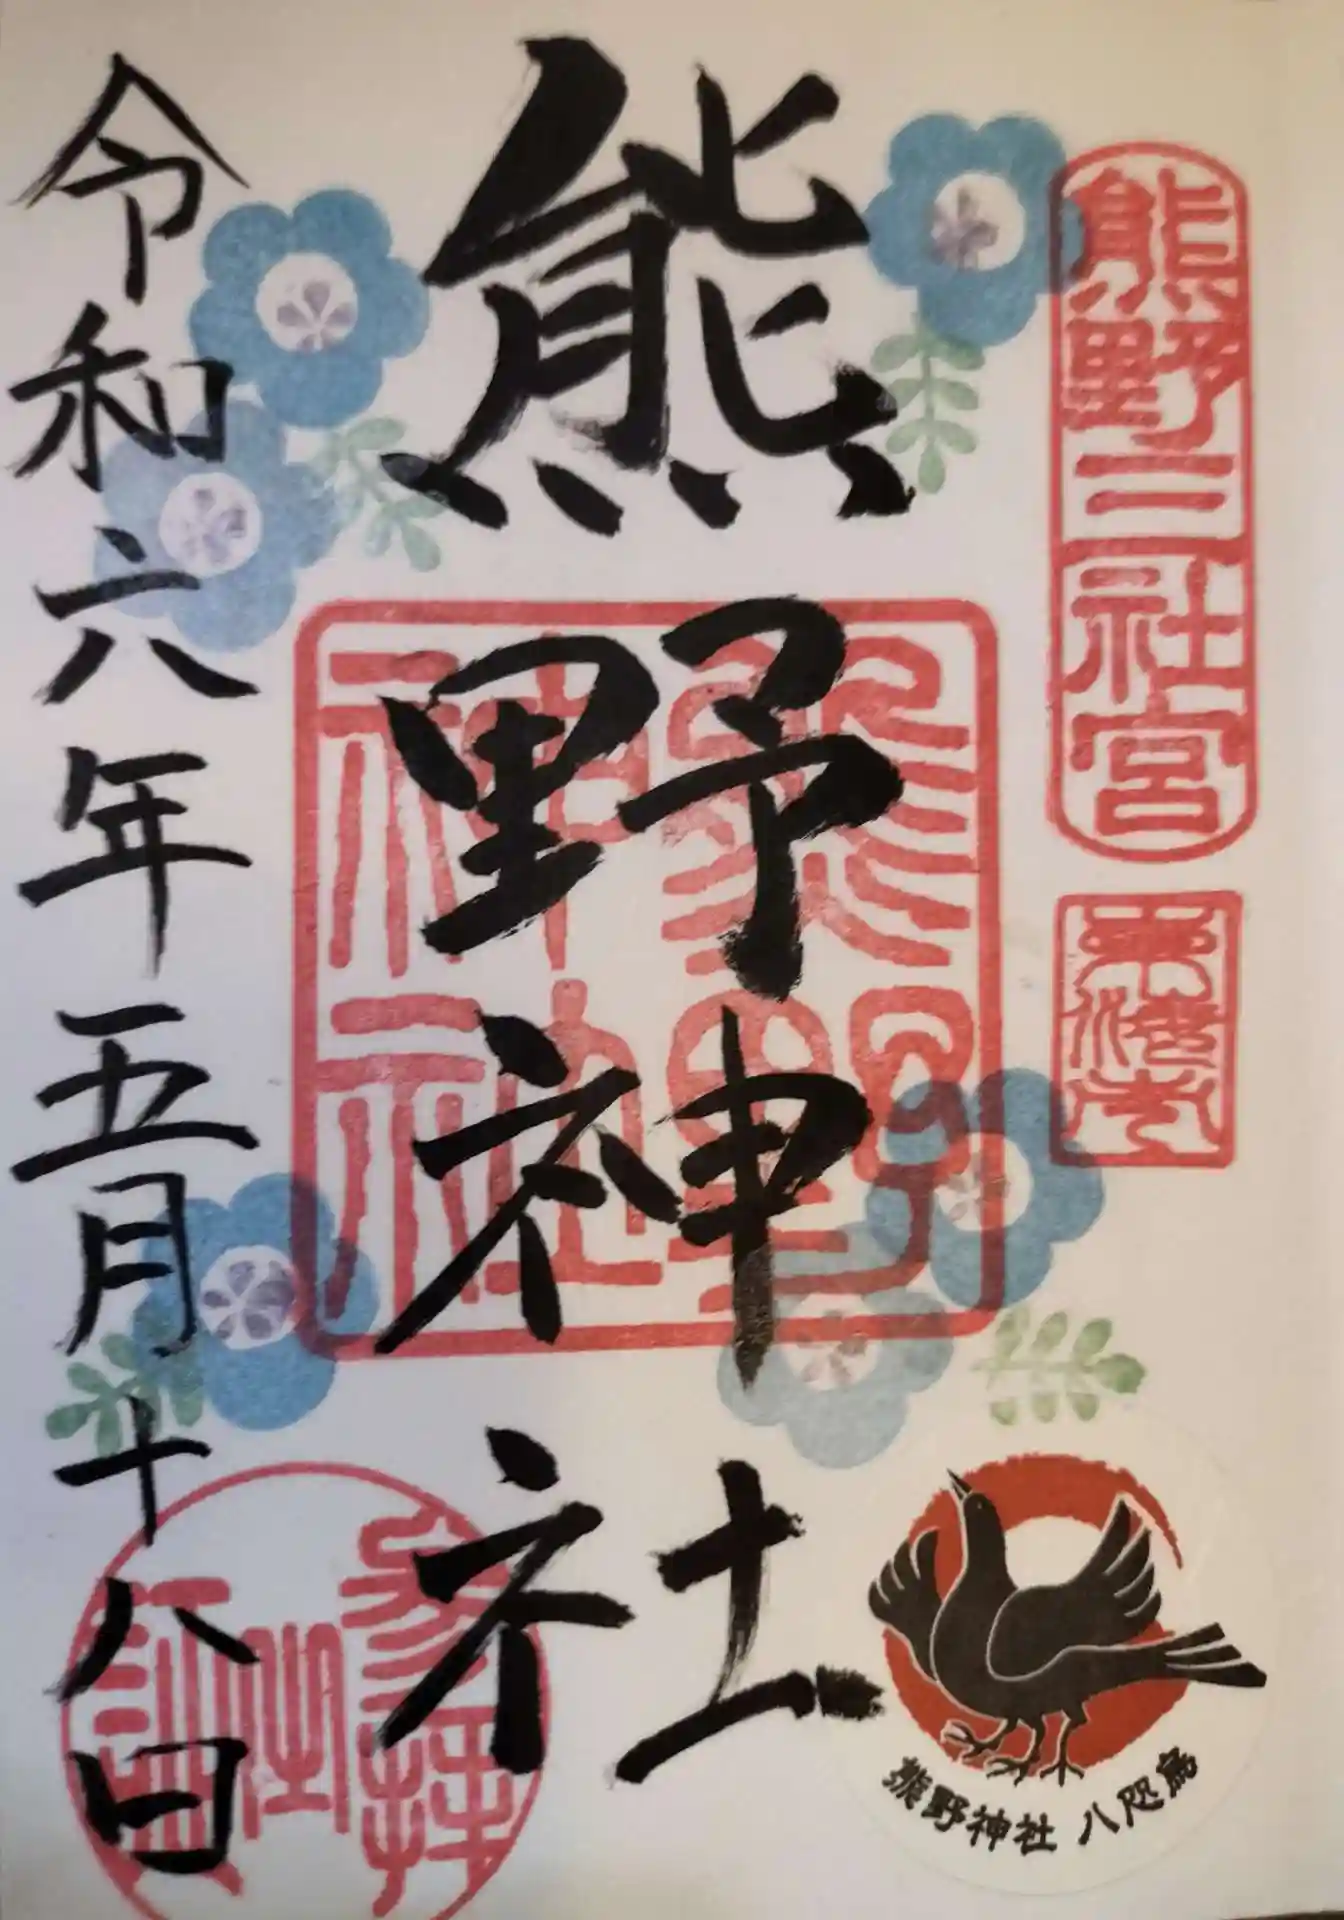 熊野三社宮
熊野神社
熊野神社
令和六年五月十八日
参拝
記念
熊野神社 八咫烏